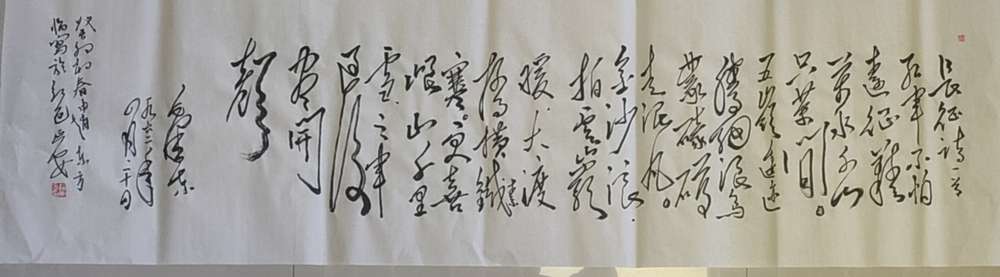 长征诗一首
红军不怕
远征难
万水千山
只等闲。
五岭逶迤
腾细浪乌
蒙磅礴
走泥丸。
金沙浪
拍云崖
暖。大渡
桥横铁
寒。更喜
岷山千里
雪。三军
过后
尽开
颜
毛泽东
一九六二年
四月二十日
癸卯春
临写于